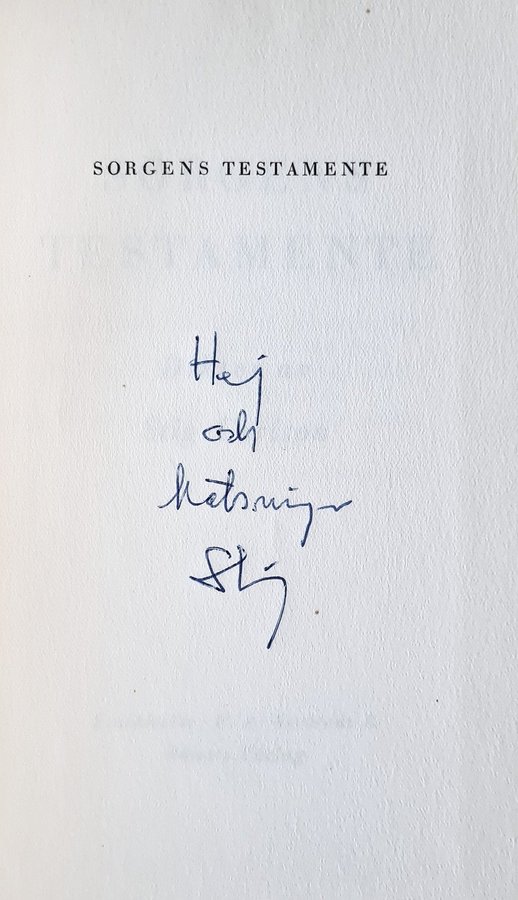 SORGENS TESTAMENTE
Hej
och
Stig